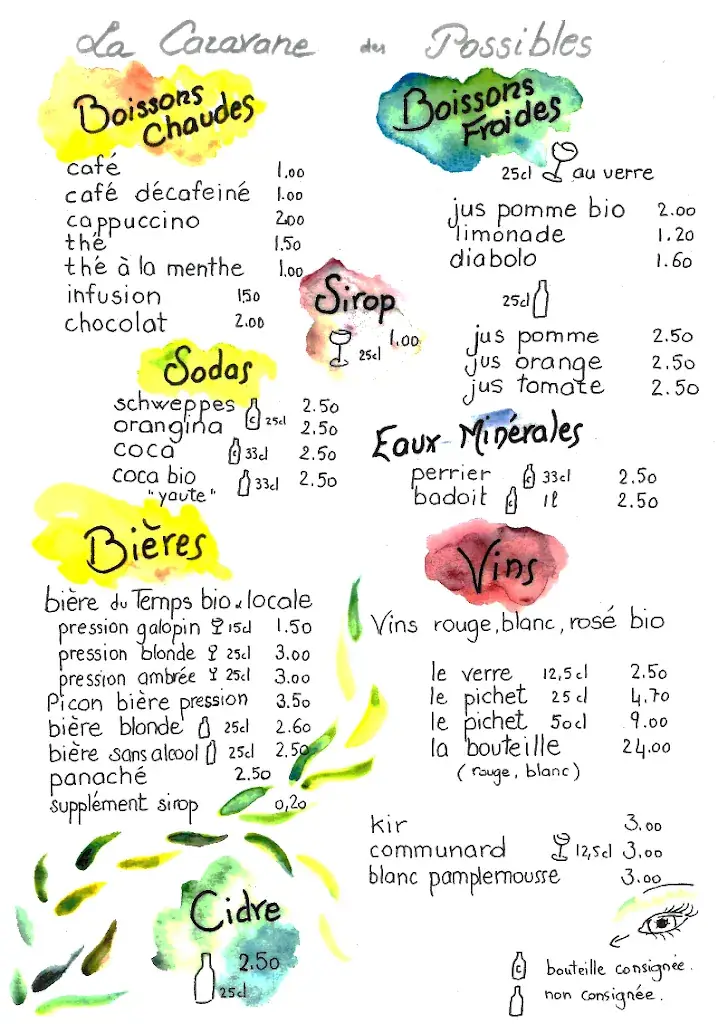 La Caravane des Possibles
Boissons
Chaudes
café 1.00
café décafeiné 1.00
cappuccino 2.00
thé 1.50
thé à la menthe 1.00
infusion 150
chocolat 2.00
Sirop
25cl 1.00
Sodas
schweppes c 25cl 2.50
orangina 2.50
coca c 33cl 2.50
coca bio 33cl 2.50
"yaute"
Bières
bière du Temps bio & locale
pression galopin 15cl 1.50
pression blonde 25cl 3.00
pression ambrée 25cl 3.00
Picon bière pression 3.50
bière blonde 25cl 2.60
bière sans alcool 25cl 2.50
panaché 2.50
supplément sirop 0,20
Cidre
2.50
25cl
Boissons
Froides
25cl au verre
jus pomme bio 2.00
limonade 1.20
diabolo 1.60
25cl
jus pomme 2.50
jus orange 2.50
jus tomate 2.50
Eaux Minérales
perrier c 33cl 2.50
badoit c 1l 2.50
Vins
Vins rouge, blanc, rosé bio
le verre 12,5cl 2.50
le pichet 25cl 4.70
le pichet 50cl 9.00
la bouteille 24.00
(rouge, blanc)
kir 3.00
communard 12,5cl 3,00
blanc pamplemousse 3.00
c bouteille consignée.
non consignée.